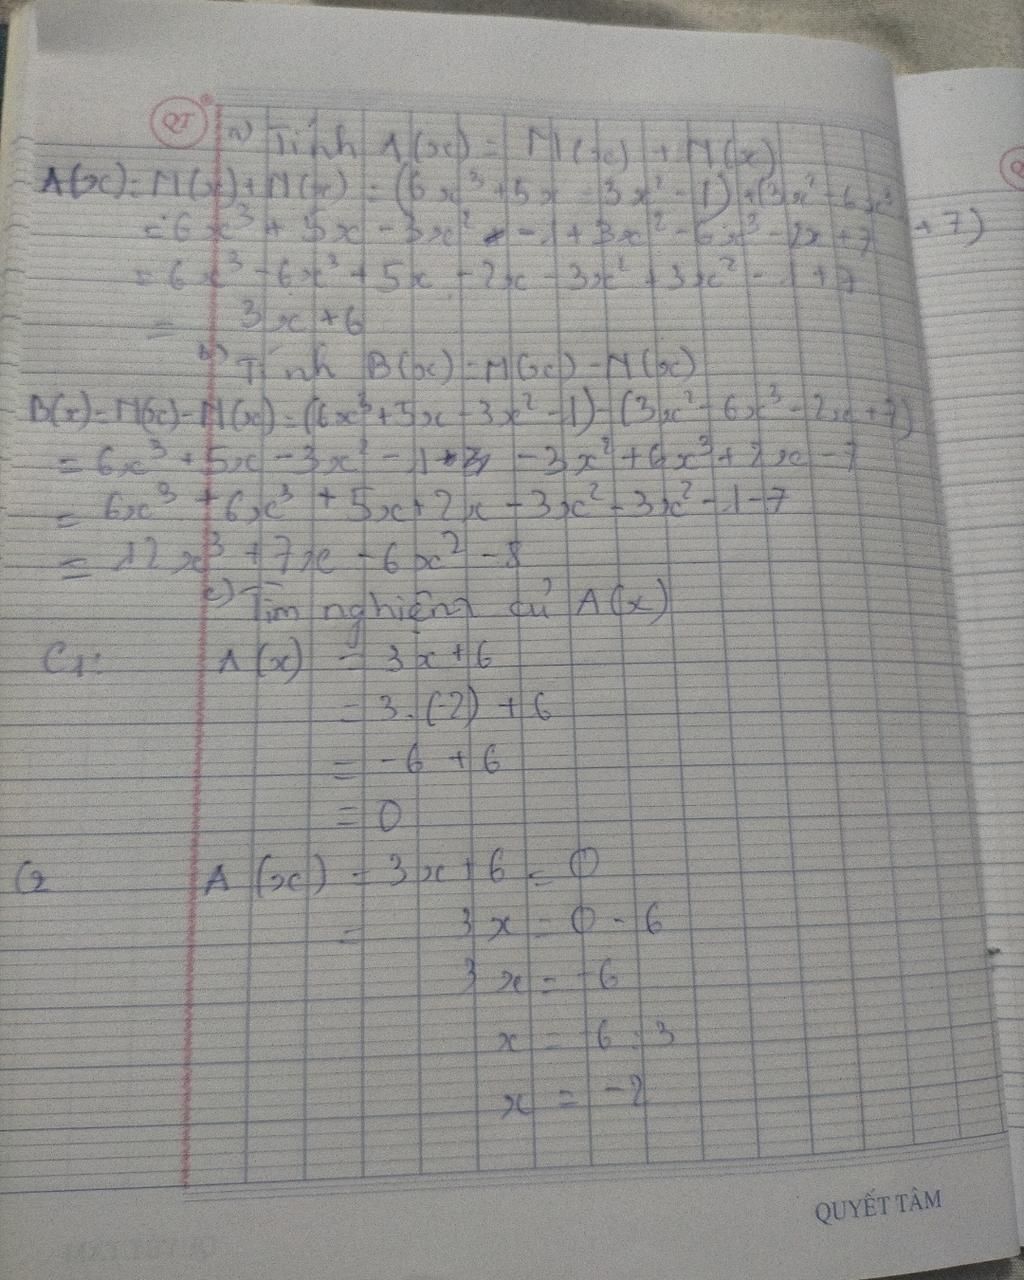 QT
a) Tính A(x) = M(x) + N(x)
A(x) = M(x) + N(x) = (6x³ + 5x - 3x² - 1) + (3x² - 6x³
+ 7)
= 6x³ + 5x - 3x² - 1 + 3x² - 6x³ - 2x + 7
= 6x³ - 6x³ + 5x - 2x - 3x² + 3x² - 1 + 7
= 3x + 6
b) Tính B(x) = M(x) - N(x)
B(x) = M(x) - N(x) = (6x³ + 5x - 3x² - 1) - (3x² - 6x³ - 2x + 7)
= 6x³ + 5x - 3x² - 1 - 3x² + 6x³ + 2x - 7
= 6x³ + 6x³ + 5x + 2x - 3x² - 3x² - 1 - 7
= 12x³ + 7x - 6x² - 8
c) Tìm nghiệm củ A(x)
C1: A(x) = 3x + 6
= 3.(-2) + 6
= -6 + 6
= 0
C2 A(x) = 3x + 6 = 0
= 3x = 0 - 6
3x = -6
x = -6 : 3
x = -2
QUYẾT TÂM